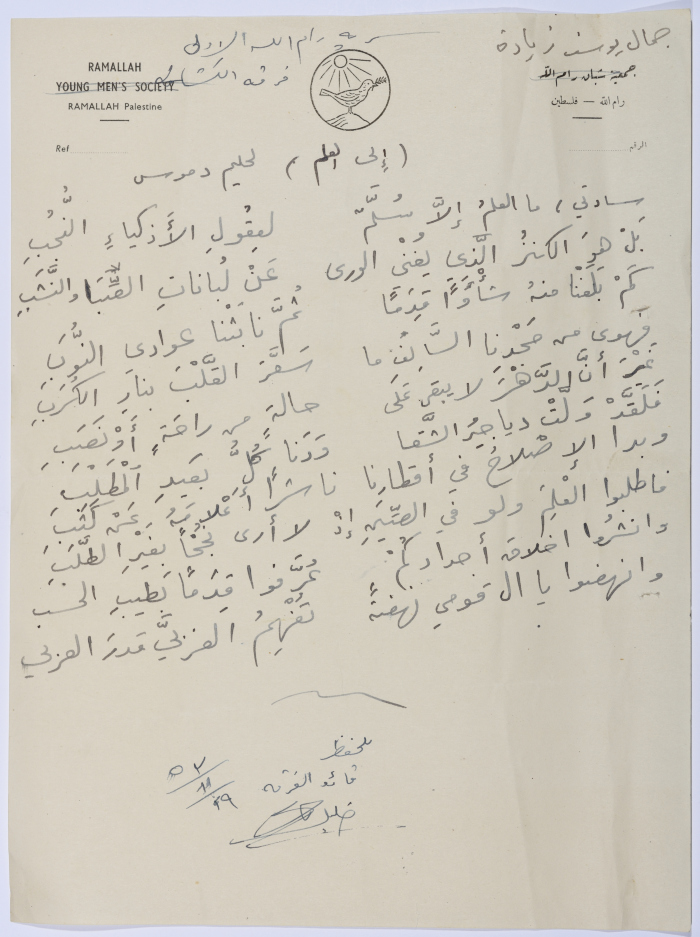 جمال يوسف زيادة
سرية رام الله الاولى
فرقة الكشاف
RAMALLAH
YOUNG MEN'S SOCIETY
RAMALLAH Palestine
جمعية شبان رام الله
رام الله — فلسطين
Ref
الرقم
(إلى العلم) لحليم دموس
سادتي، ما العلمُ إلاَّ سُلَّمٌ لعِقُولِ الأَذكياءِ النُّجُبِ
بَلْ هوَ الكنزُ الَّذي يُغْنى الورى عَنْ لُباناتِ الصِّبَا والنَّشَبِ
كَمْ بَلَغْنا منهُ شأْوًا قِدَمًا ثُمَّ نابَتْنا عوادى النُّوَبَ
فهوى من مَجْدِنا السَّالِفِ ما سَعَّرَ القَلْبَ بنارِ الكُرَبِ
غَيْرَ أنَّ الدَّهْرَ لا يبقى عَلى حالةٍ من راحَةٍ أوْ نَصَبِ
فَلَقَدْ وَلَّتْ دياجيرُ الشَّقا وَدَنا كُلُّ بَعيدِ المَطْلَبِ
وبدا الإصْلاحُ في أقطارِنا ناشرًا أعْلامَهُ عَنْ كَثَبِ
فاطلبوا العِلْمَ ولو في الصِّينِ إذْ لا أرى نُجْحًا بغَيْرِ الطَّلَبِ
وانشُروا اخلاقَ أجدادٍ لكُمْ عُرِفوا قِدَمًا بَطيبِ الحسب
وانهضوا يا ال قومي نهضةً تُفْهِمُ الغربيَّ قدرَ العربي
للحفظ
قائد الفرقة
خليل
٥٣/١١/٢٩